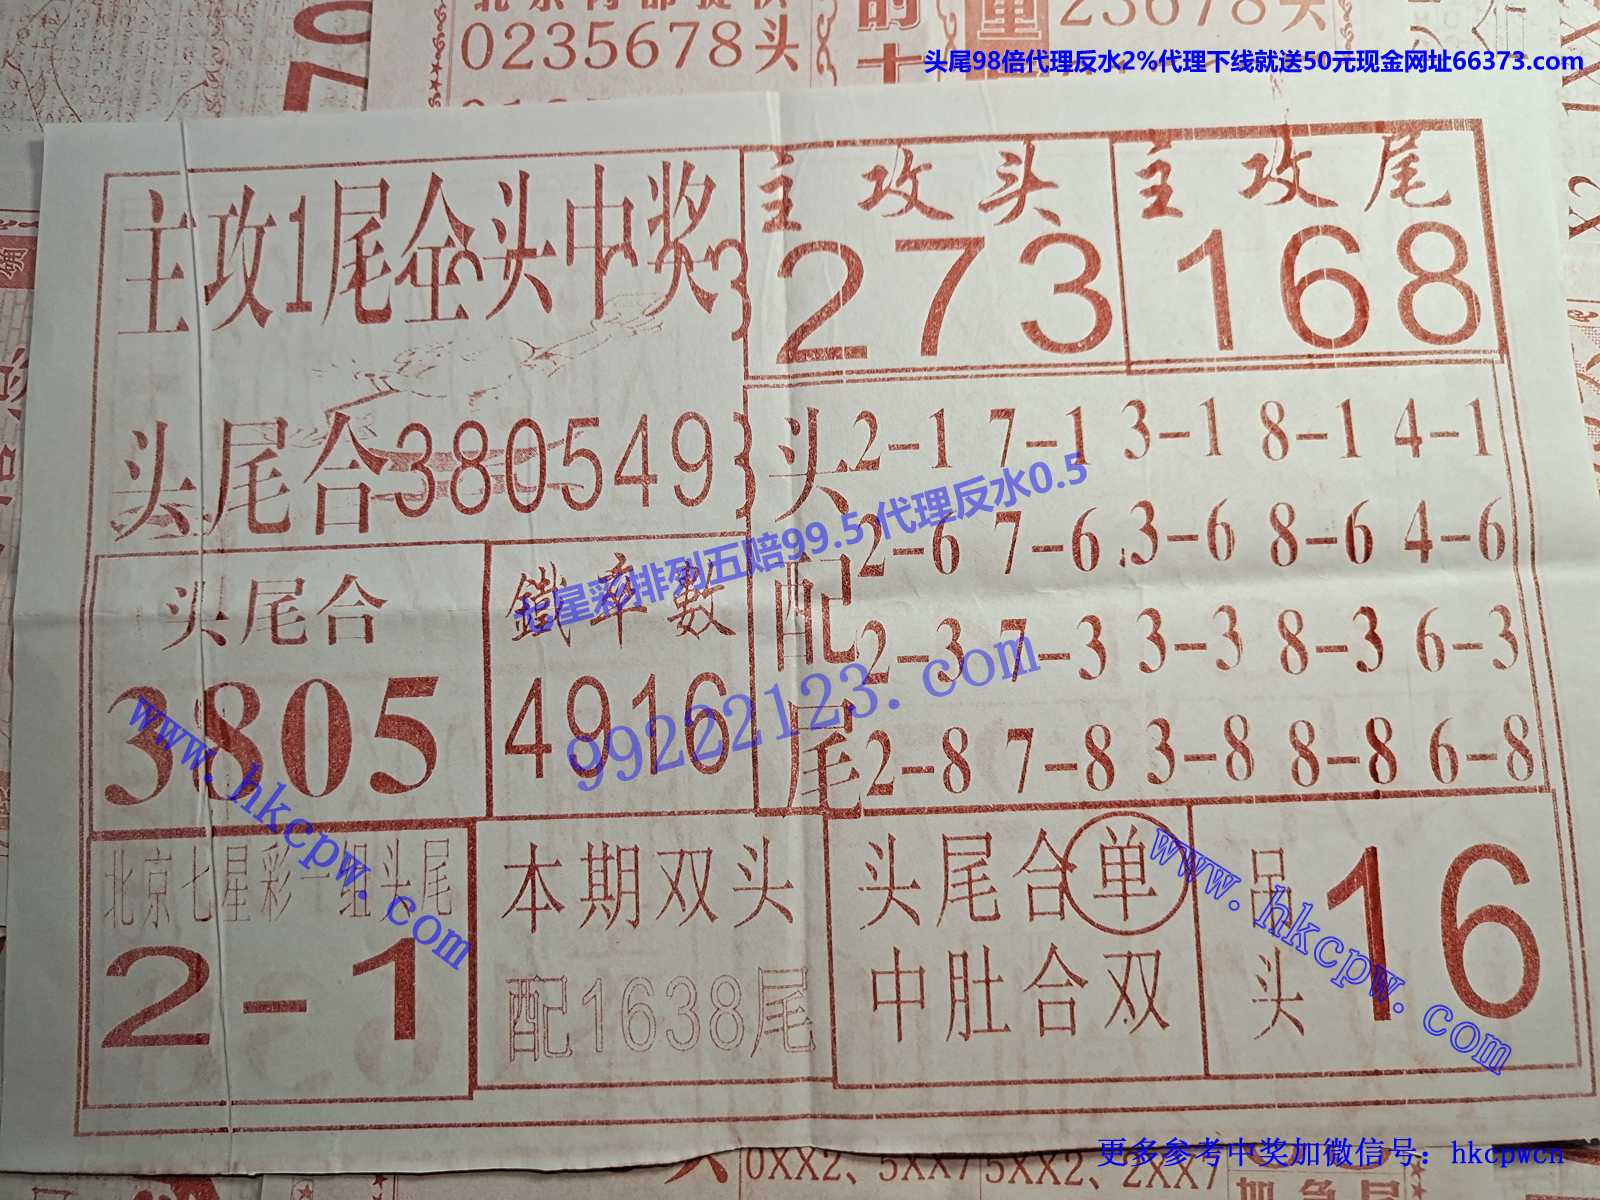 0235678头
23678头
头尾98倍代理反水2%代理下线就送50元现金网址66373.com
主攻1尾全头中奖
主攻头
273
主攻尾
168
头尾合380549
头配尾
2-1 7-1 3-1 8-1 4-1
2-6 7-6 3-6 8-6 4-6
2-3 7-3 3-3 8-3 6-3
2-8 7-8 3-8 8-8 6-8
七星彩排列五赔99.5代理反水0.5
99222123.com
头尾合
3805
鐵率數
4916
www.hkcpw.com
北京七星彩一组头尾
2-1
本期双头
配1638尾
头尾合单
中肚合双
吊头
16
www.hkcpw.com
更多参考中奖加微信号：hkcpwcn
0XX2、5XX7 5XX2、2XX7